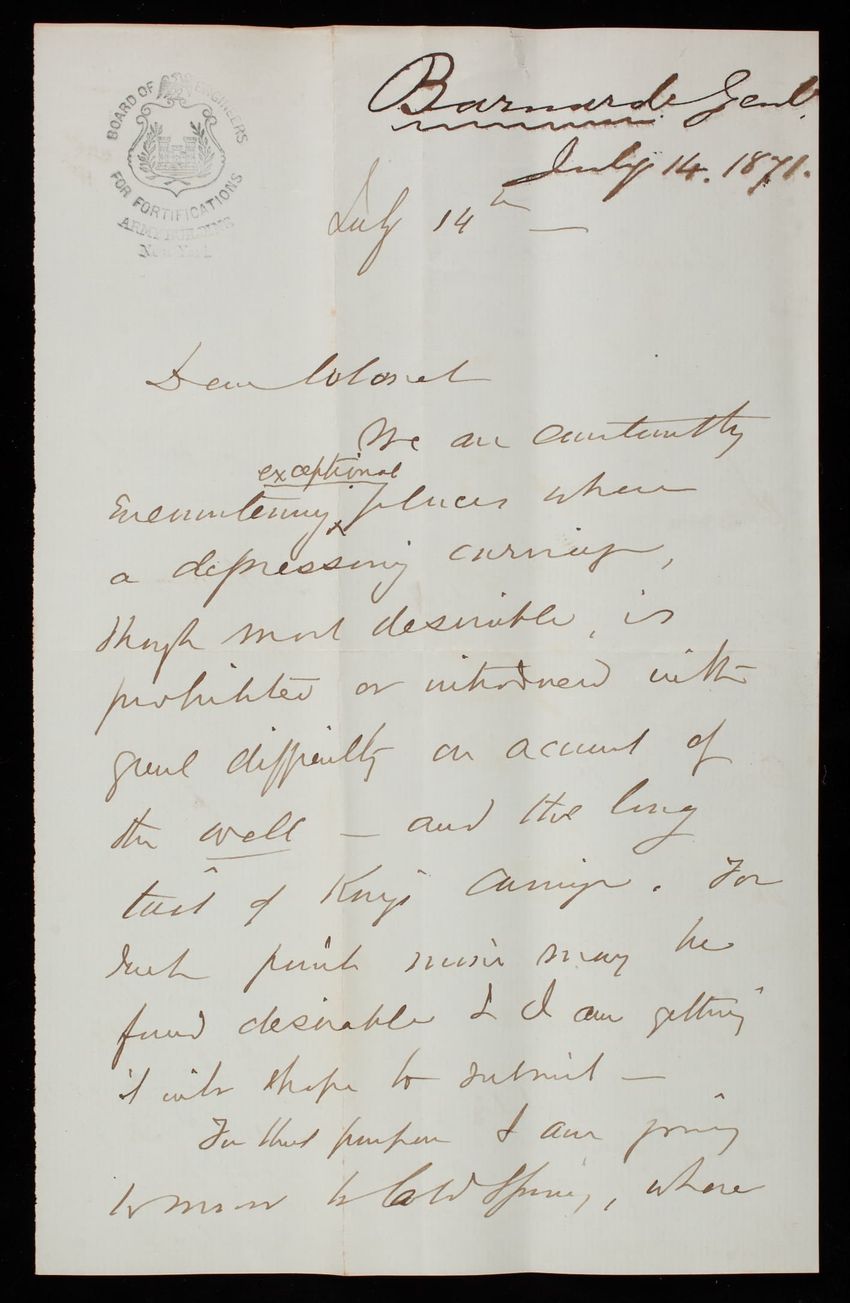 BOARD OF ENGINEERS
FOR FORTIFICATIONS
ARMY BUILDING
New York
Barnard Genl.
July 14. 1871.
July 14th —
Dear Colonel
We are constantly
exceptional
encountering places where
a depressing carriage,
though most desirable, is
prohibited or introduced with
great difficulty on account of
the well — and the long
tail of King's Carriage. For
such points mine may be
found desirable & I am getting
it into shape to submit —
For that purpose I am going
tomorrow to Cold Spring, where